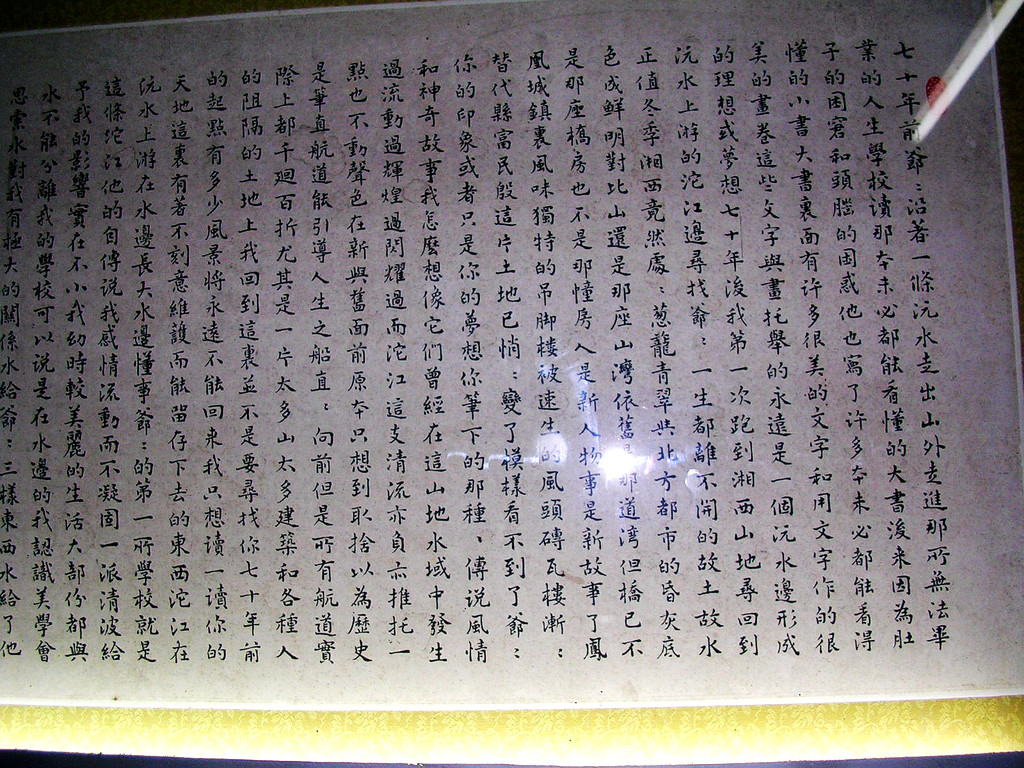 七十年前爺：沿著一條沅水走出山外走進那所無法畢
業的人生學校读那夲未必都能看懂的大書後来因為肚
子的困窘和頭腦的困惑他也寫了许多夲未必都能看得
懂的小書大書裏面有许多很美的文字和用文字作的很
美的畫卷這些文字與畫托舉的永遠是一個沅水邊形成
的理想或夢想七十年後我第一次跑到湘西山地尋回到
沅水上游的沱江邊尋找爺：一生都離不開的故土故水
正值冬季湘西竟然處：葱蘢青翠與北方都市的昏灰底
色成鮮明對比山還是那座山灣依舊是那道湾但橋已不
是那座橋房也不是那幢房人是新人物事是新故事了鳳
凰城鎮裏風味獨特的吊脚楼被速生的風頭磚瓦樓漸：
替代縣富民殷這片土地已悄：變了模樣看不到了爺：
你的印象或者只是你的夢想你筆下的那種、傳说風情
和神奇故事我怎麼想像它们曾經在這山地水域中發生
過流動過輝煌過閃耀過而沱江這支清流亦負亦推托一
點也不動聲色在新與舊面前原夲只想到取捨以為歷史
是筆直航道能引導人生之船直：向前但是所有航道實
際上都千廻百折尤其是一片太多山太多建築和各種人
的阻隔的土地上我回到這裏並不是要尋找你七十年前
的起點有多少風景將永遠不能回来我只想读一读你的
天地這裏有著不刻意維護而能畱存下去的東西沱江在
沅水上游在水邊長大水邊懂事爺：的第一所學校就是
這條沱江他的自傳说我感情流動而不凝固一派清波給
予我的影響實在不小我幼時較美麗的生活大部份都與
水不能分離我的學校可以说是在水邊的我認識美學會
思索水對我有極大的關係水給爺：三樣東西水給了他